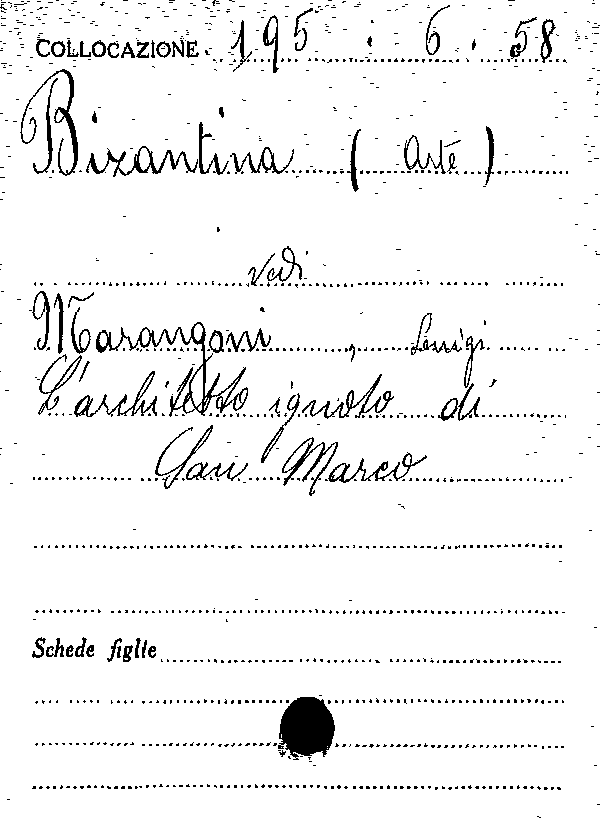 COLLOCAZIONE. 195 . 6 . 58
Bizantina ( Arte )
vedi
Marangoni , Luigi
L'architetto ignoto di
San Marco
Schede figlie